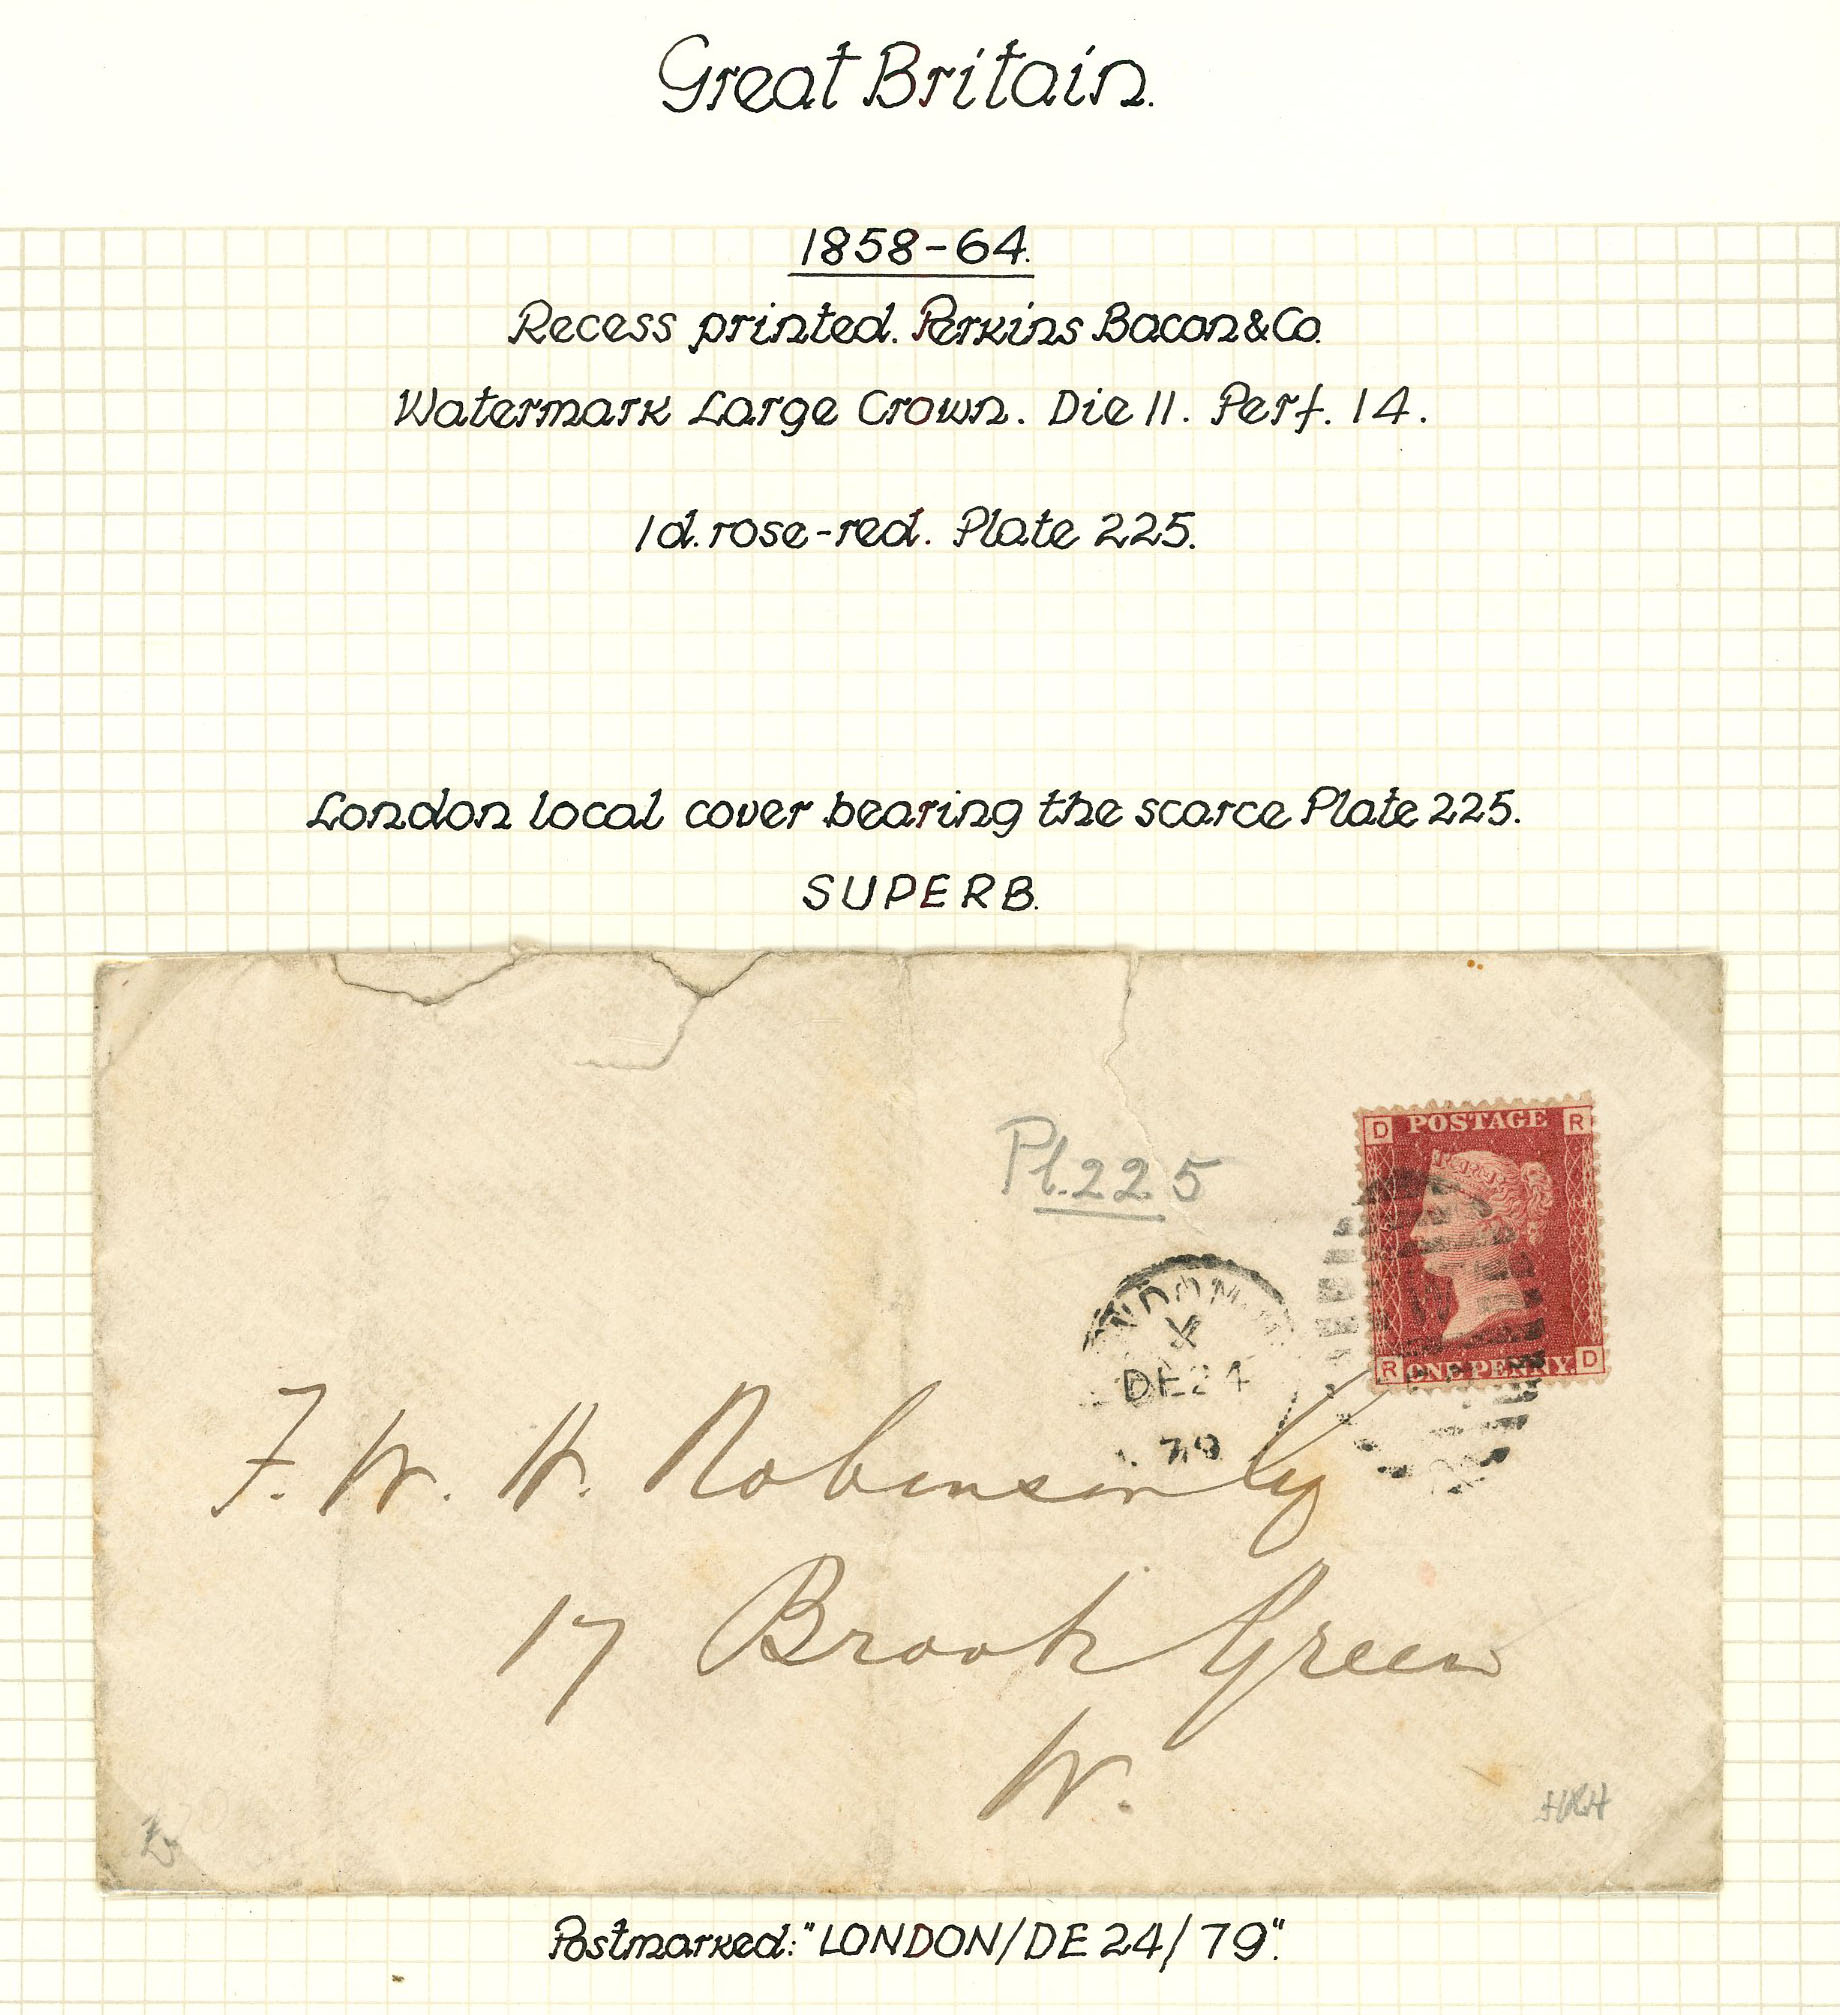 Great Britain.
1858-64.
Recess printed. Perkins Bacon & Co.
Watermark Large Crown. Die II. Perf. 14.
1d. rose-red. Plate 225.
London local cover bearing the scarce Plate 225.
SUPERB.
D POSTAGE R
Pl. 225
R ONE PENNY. D
NDON
X
DE 24
79
F. W. H. Robinson Esq
17 Brook Green
W.
HRH
Postmarked: "LONDON/DE 24/79".